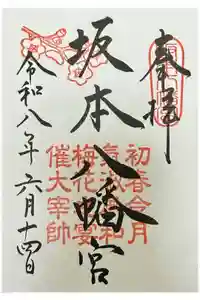 奉拝
坂本八幡宮
初春令月
気淑風和
梅花宴
催大宰帥
令和八年六月十四日